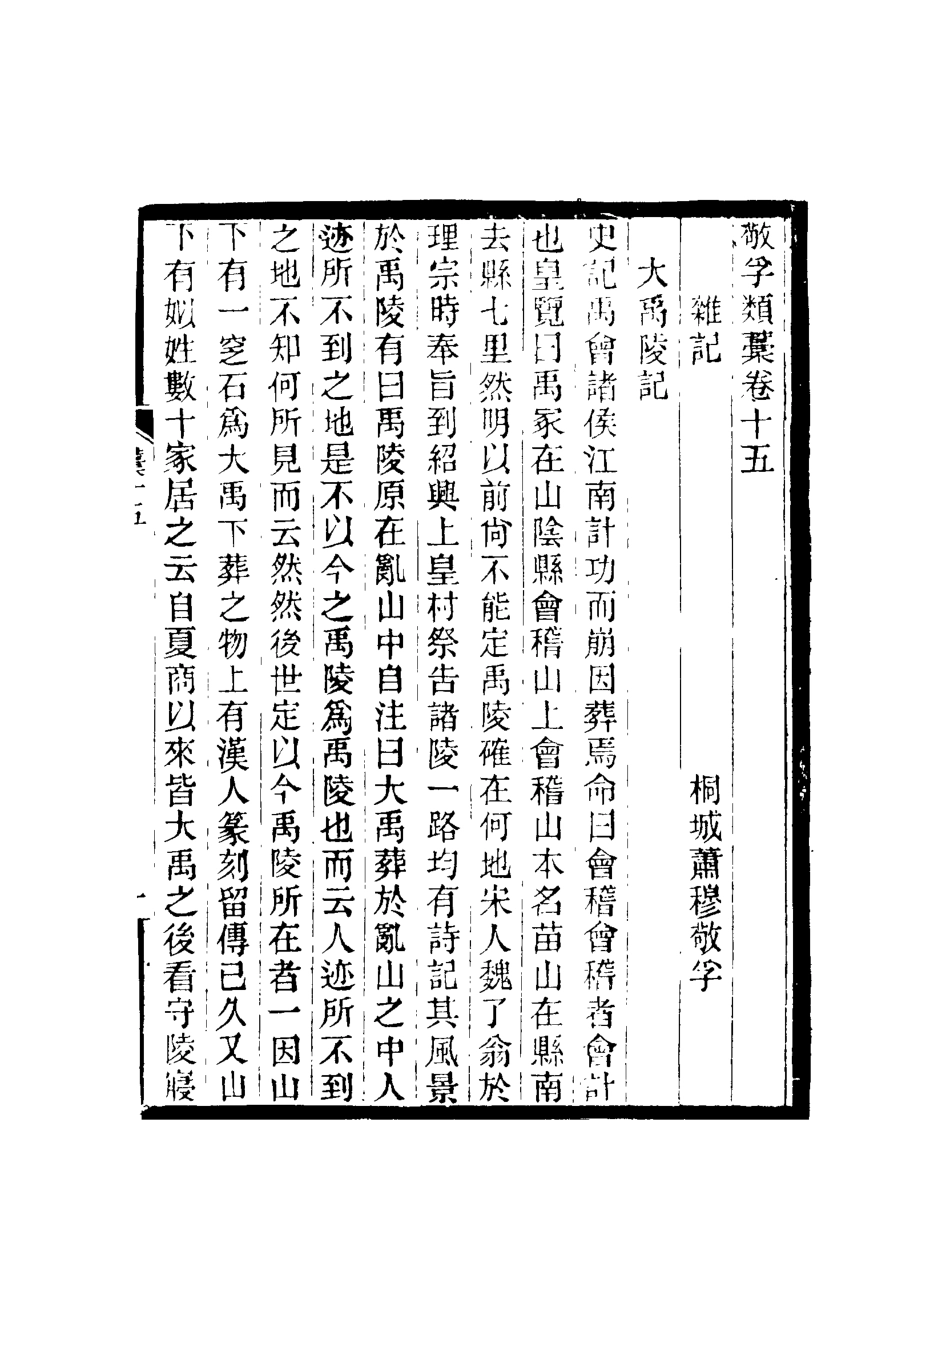 敬孚類藁卷十五
雜記
桐城蕭穆敬孚
大禹陵記
史記禹會諸侯江南計功而崩因葬焉命曰會稽會稽者會計
也皇覽曰禹冢在山陰縣會稽山上會稽山本名苗山在縣南
去縣七里然明以前尙不能定禹陵確在何地宋人魏了翁於
理宗時奉旨到紹興上皇村祭告諸陵一路均有詩記其風景
於禹陵有曰禹陵原在亂山中自注曰大禹葬於亂山之中人
迹所不到之地是不以今之禹陵爲禹陵也而云人迹所不到
之地不知何所見而云然然後世定以今禹陵所在者一因山
下有一窆石爲大禹下葬之物上有漢人篆刻留傳已久又山
下有姒姓數十家居之云自夏商以來皆大禹之後看守陵寢
藁十五
一